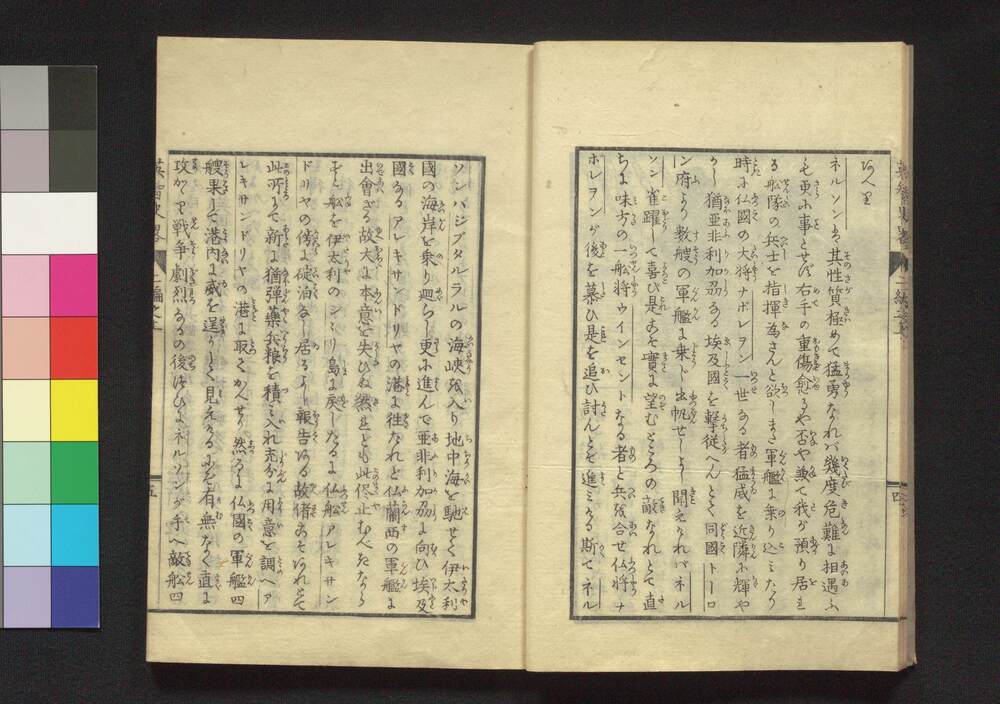 ネルソンは其性質極めて猛勇なれバ幾度危難に相遇ふ
も更に事とせず右手の重傷愈るや否や兼て我が預り居た
る船隊の兵士を指揮為さんと欲しまさ軍艦に乗り込ミたり
時に仏國の大将ナポレヲン一世なる者猛威を近隣に輝や
かし猶亜非利加刕なる埃及國を撃従へんとて同國トーロ
ン府より数艘の軍艦に乗じ出帆せしよし聞えけれバネル
ソン雀躍して喜び是よき實に望むところの敵なれとて直
ちに味方の一舩将ウインセントなる者と兵を合せ仏将ナ
ポレヲンが後を慕ひ是を追ひ討んとを進ミける斯てネル
四
ソンハジブタルラルの海峡を入り地中海を馳せて伊太利
國の海岸を乗り廻らし更に進んで亜非利加刕に向ひ埃及
國なるアレキサンドリヤの港に往たれど仏蘭西の軍艦に
出會ざる故大に本意を失ひぬ然れども此侭止むべきなら
ずと舩を伊太利のシシリ島に戻したるに仏舩アレキサン
ドリヤの傍に碇泊なし居るよし報告ある故偖こそあれとて
此所にて新に猶弾薬兵粮を積ミ入れ充分に用意を調へア
レキサンドリヤの港に取てかへせり然るに仏國の軍艦四
艘果して港内に威を逞ふして見えけるにぞ有無なく直に
攻かゝり戦争劇烈なるの後つひにネルソンが手へ敵舩四
五